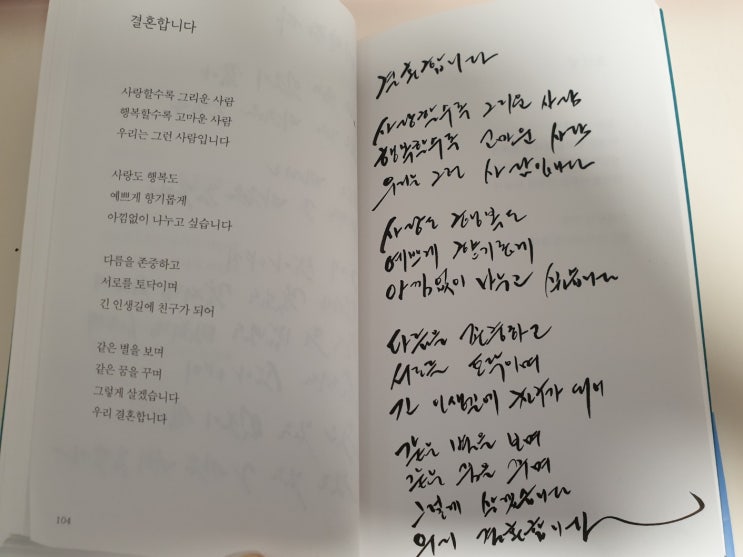 결혼합니다
사랑할수록 그리운 사람
행복할수록 고마운 사람
우리는 그런 사람입니다
사랑도 행복도
예쁘게 향기롭게
아낌없이 나누고 싶습니다
다름을 존중하고
서로를 토닥이며
긴 인생길에 친구가 되어
같은 별을 보며
같은 꿈을 꾸며
그렇게 살겠습니다
우리 결혼합니다
104
결혼합니다
사랑할수록 그리운 사람
행복할수록 고마운 사람
우리는 그런 사람입니다
사랑도 행복도
예쁘게 향기롭게
아낌없이 나누고 싶습니다
다름을 존중하고
서로를 토닥이며
긴 인생길에 친구가 되어
같은 별을 보며
같은 꿈을 꾸며
그렇게 살겠습니다
우리 결혼합니다